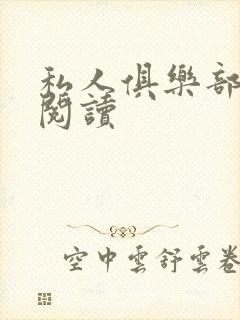 私人俱樂部
閱讀
空中雲舒雲卷